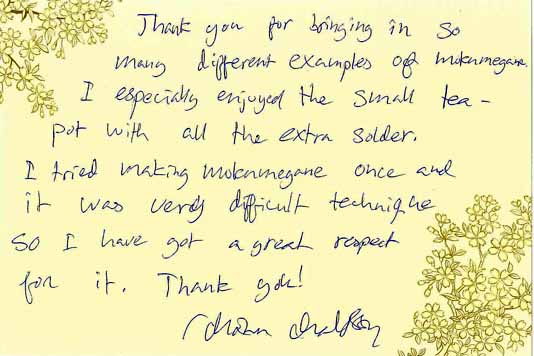 Thank you for bringing in so
many different examples of mokumegane.
I especially enjoyed the small tea-
pot with all the extra solder.
I tried making mokumegane once and
it was very difficult technique
so I have got a great respect
for it. Thank you!